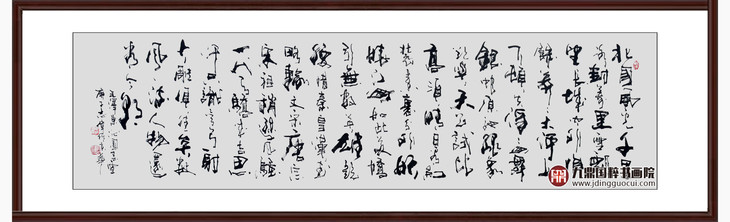 北国风光千里
冰封万里雪飘
望长城内外惟
馀莽莽大河上
下顿失滔滔山舞
银蛇原驰蜡象
欲与天公试比
高须晴日看红
装素裹分外妖
娆江山如此多娇
引无数英雄竞
腰惜秦皇汉武
略输文采唐宗
宋祖稍逊风骚
一代天骄成吉思
汗只识弯弓射
大雕俱往矣数
风流人物还
看今朝
九鼎国醉书画院
www.jdingguocui.com